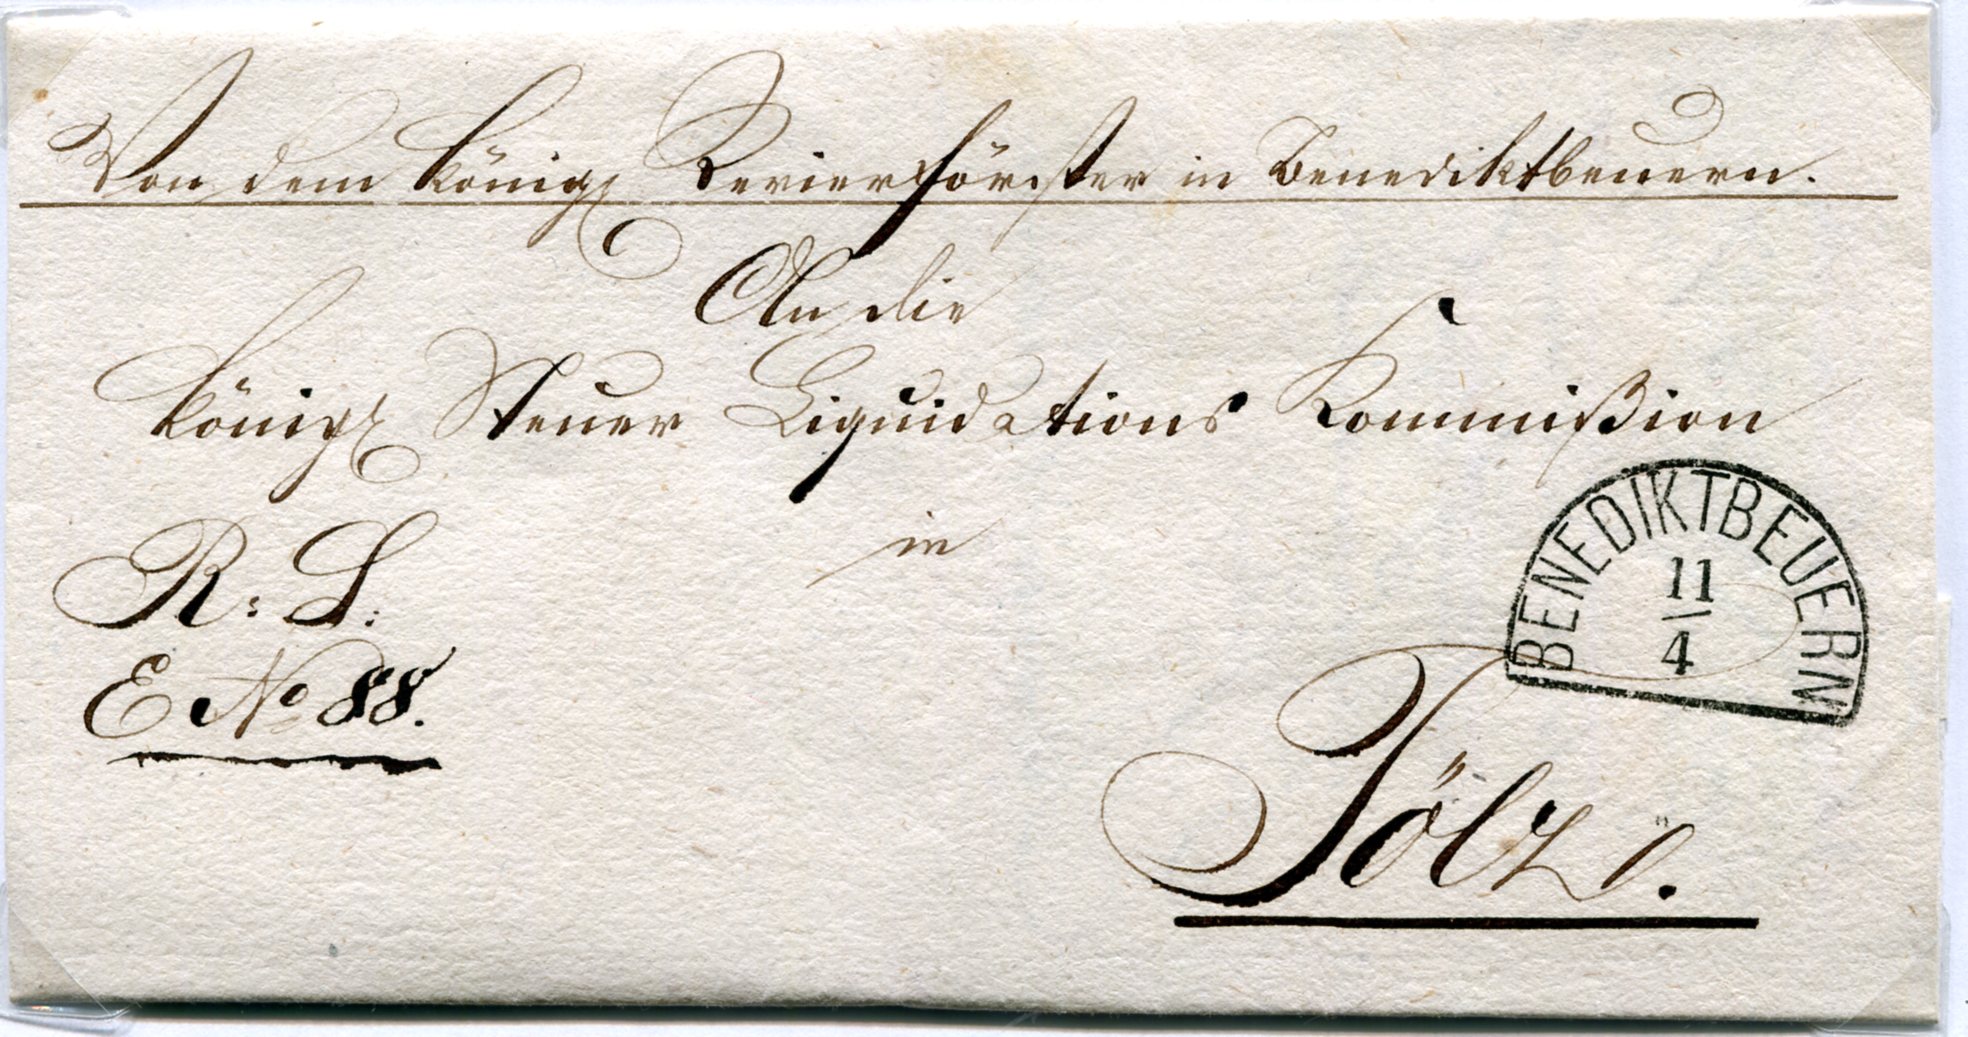 Von dem königl Revierförster in Benediktbeuern.
An die
königl Steuer Liquidations Kommißion
in
R: S:
E No 88.
BENEDIKTBEUERN
11
4
Tölz.